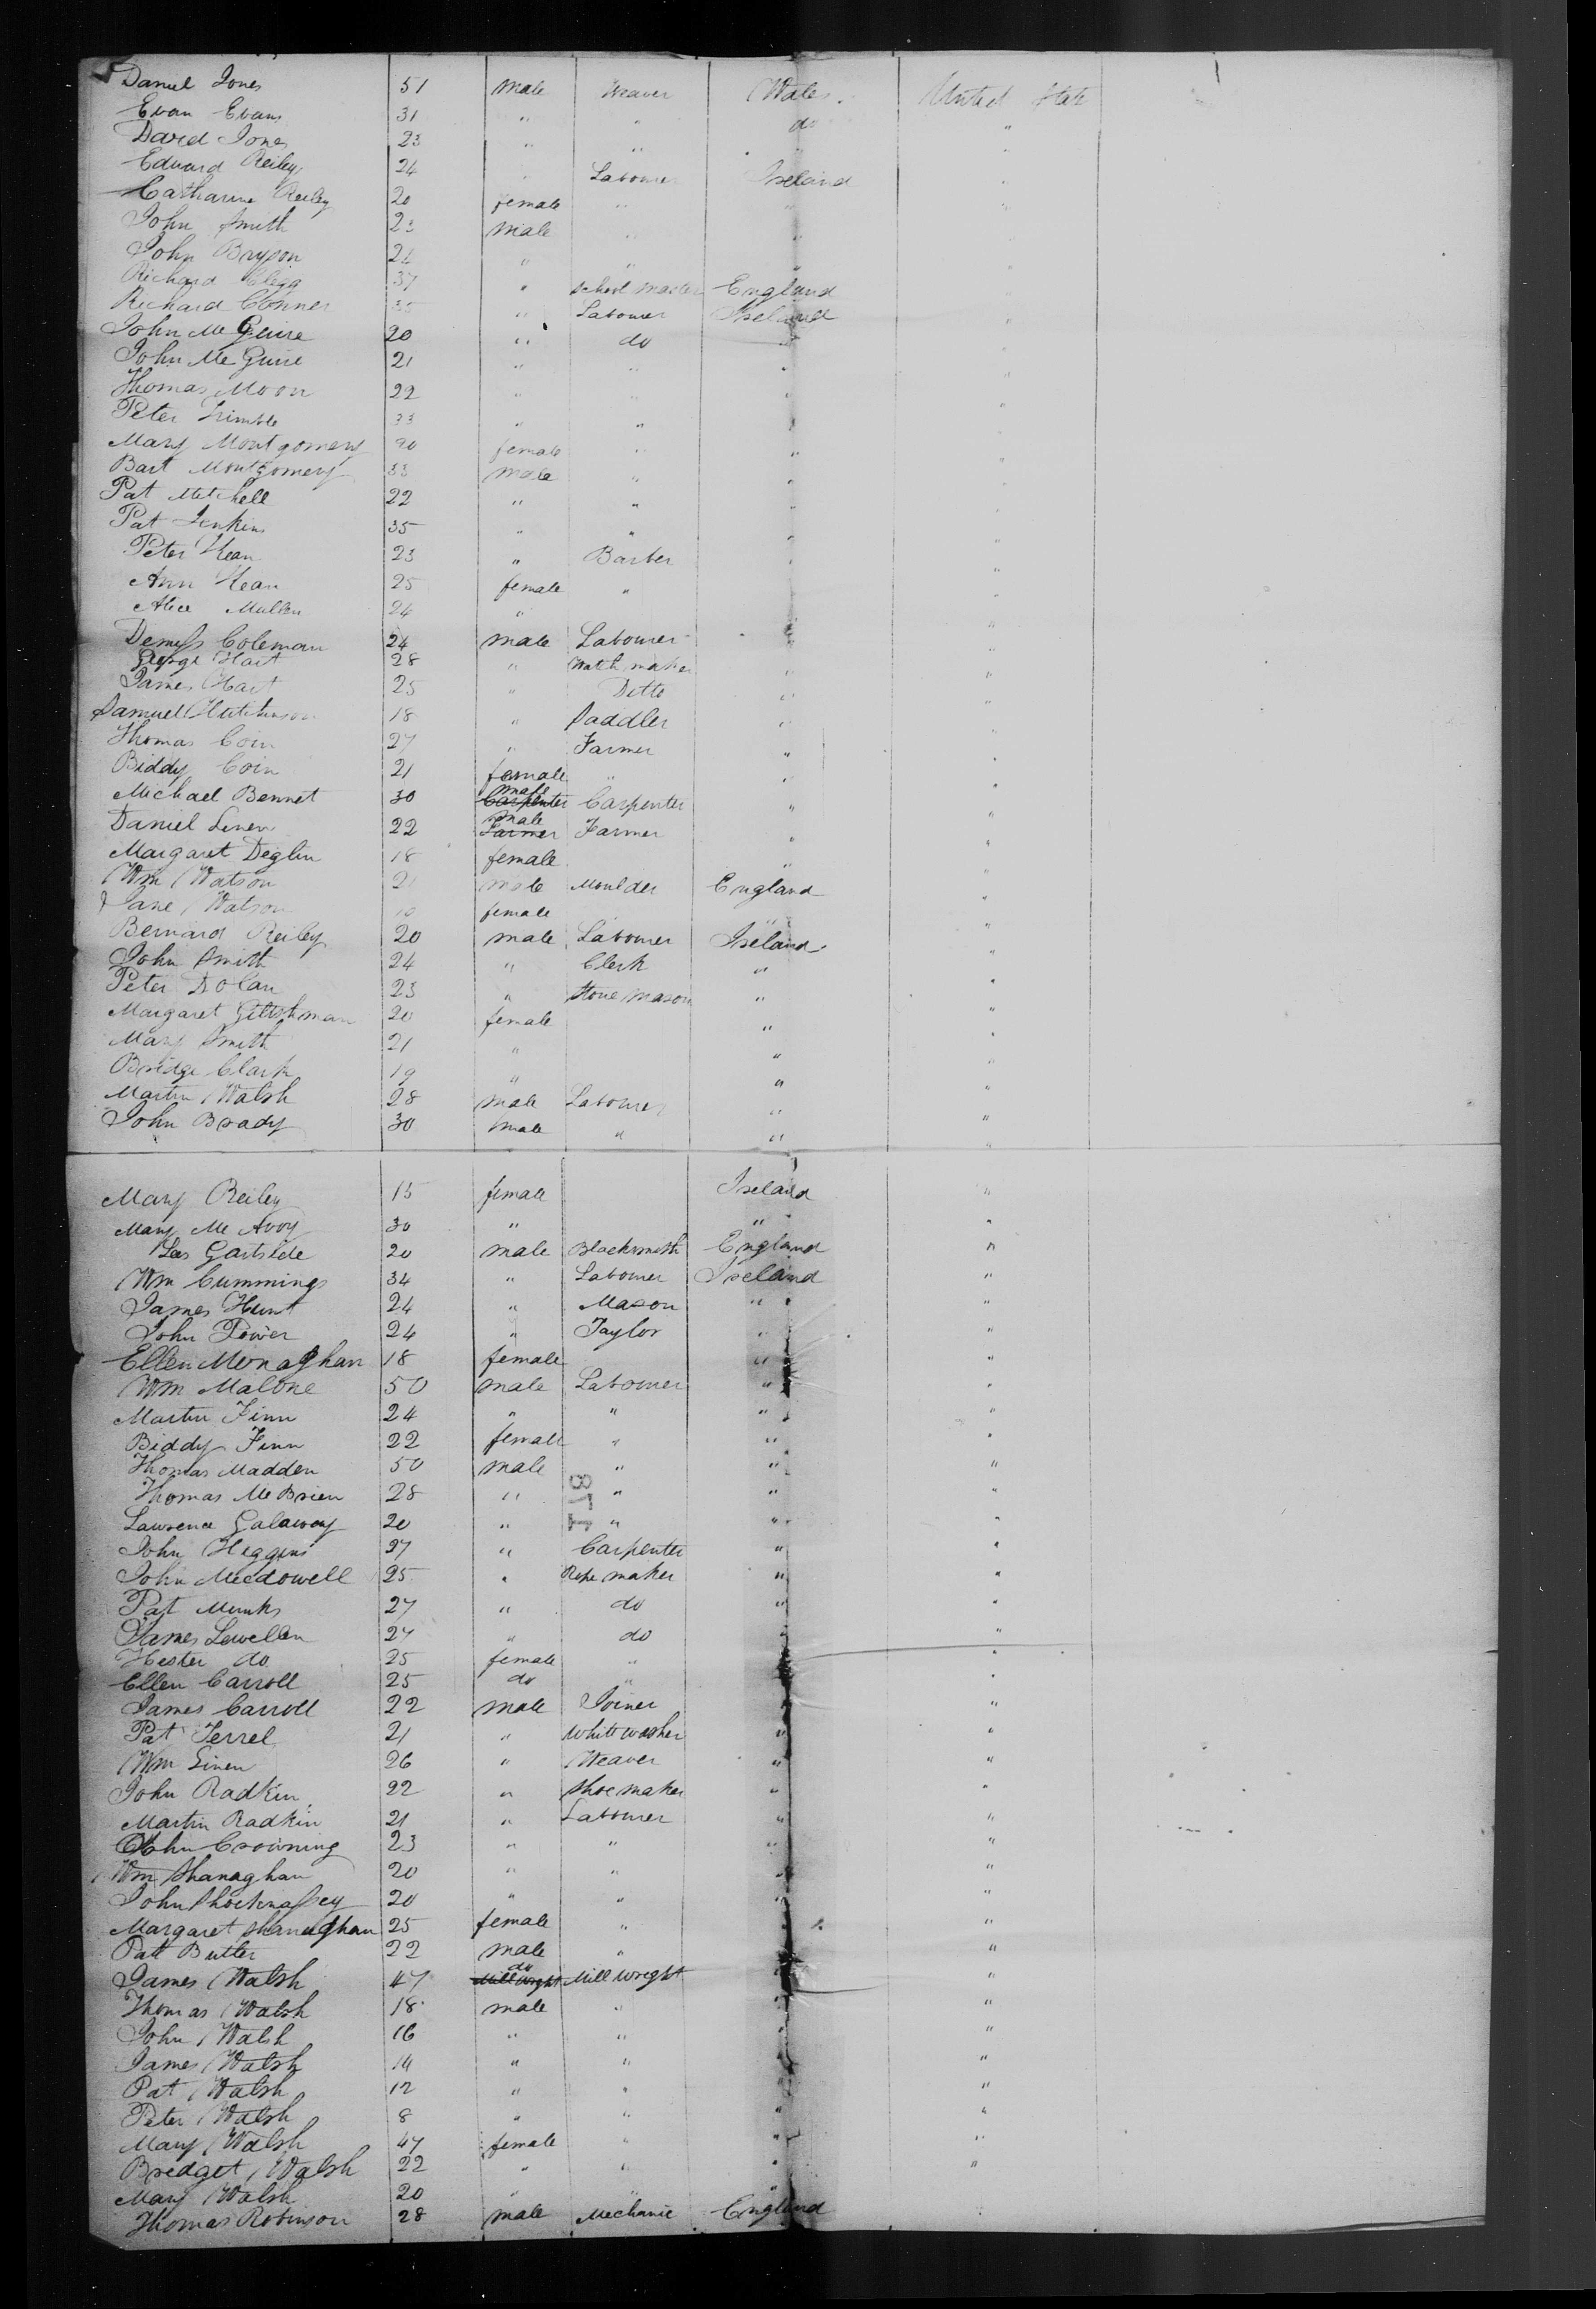 Daniel Jones 51 male Weaver Wales United State
Evan Evans 31 " " do "
David Jones 23 " " " "
Edward Reiley 24 " Labourer Ireland "
Catharine Reiley 20 female " " "
John Smith 23 male " " "
John Bryson 22 " " " "
Richard Clegg 37 " School Master England "
Richard Conner 35 " Labourer Ireland "
John McGuire 20 " do " "
John McGuire 21 " " " "
Thomas Moon 22 " " " "
Peter Trimble 33 " " " "
Mary Montgomery 20 female " " "
Bart Montgomery 33 male " " "
Pat Mitchell 22 " " " "
Pat Jenkins 35 " " " "
Peter Kean 23 " Barber " "
Ann Kean 25 female " " "
Alice Mullen 24 " "
Demss Coleman 24 male Labourer " "
George Hart 28 " Watch maker " "
James Hart 25 " Ditto " "
Samuel Hutchinson 18 " Saddler " "
Thomas Coin 27 " Farmer " "
Biddy Coin 21 female " " "
Michael Bennet 30 Carpenter male Carpenter " "
Daniel Linen 22 Farmer male Farmer " "
Margaret Deglin 18 female " "
Wm Watson 21 male Moulder England "
Jane Watson female " "
Bernard Reiley 20 male Labourer Ireland "
John Smith 24 " Clerk " "
Peter Dolan 23 " Stone Mason " "
Margaret 20 female " "
Mary Smith 21 " " "
Bridge Clark 19 " " "
Martin Walsh 28 male Labourer " "
John Brady 30 male " " "
Mary Reiley 15 female Ireland "
Mary McAvoy 30 " " "
Les Gartside 20 male Blacksmith England "
Wm Cummings 34 " Labourer Ireland "
James Hunt 24 " Mason " "
John Power 24 " Taylor " "
Ellen Monaghan 18 female " "
Wm Malone 50 male Labourer " "
Martin Finn 24 " " " "
Biddy Finn 22 female " " "
Thomas Madden 50 male " " "
Thomas McBrien 28 " " " "
Lawrence Galaway 20 " " " "
871
John Higgins 27 " Carpenter " "
John Mecdowell 25 " Rope maker " "
Pat Munks 27 " do " "
James Lewellen 27 " do " "
Hester do 25 female " " "
Ellen Carroll 25 do " " "
James Carroll 22 male Joiner " "
Pat Ferrel 21 " White washer " "
Wm Linen 26 " Weaver " "
John Radkin 22 " Shoe maker " "
Martin Radkin 21 " Labourer " "
John Crowning 23 " " " "
Wm Shanaghan 20 " " " "
John Shocknassey 20 " " " "
Margaret Shanaghan 25 female " " "
Patt Butler 22 male " " "
James Walsh 47 Mill Wright do Mill Wright " "
Thomas Walsh 18 male " " "
John Walsh 16 " " " "
James Walsh 14 " " " "
Pat Walsh 12 " " " "
Peter Walsh 8 " " " "
Mary Walsh 47 female " " "
Bredget Walsh 22 " " " "
Mary Walsh 20 " " "
Thomas Robinson 28 male Mechanic England "